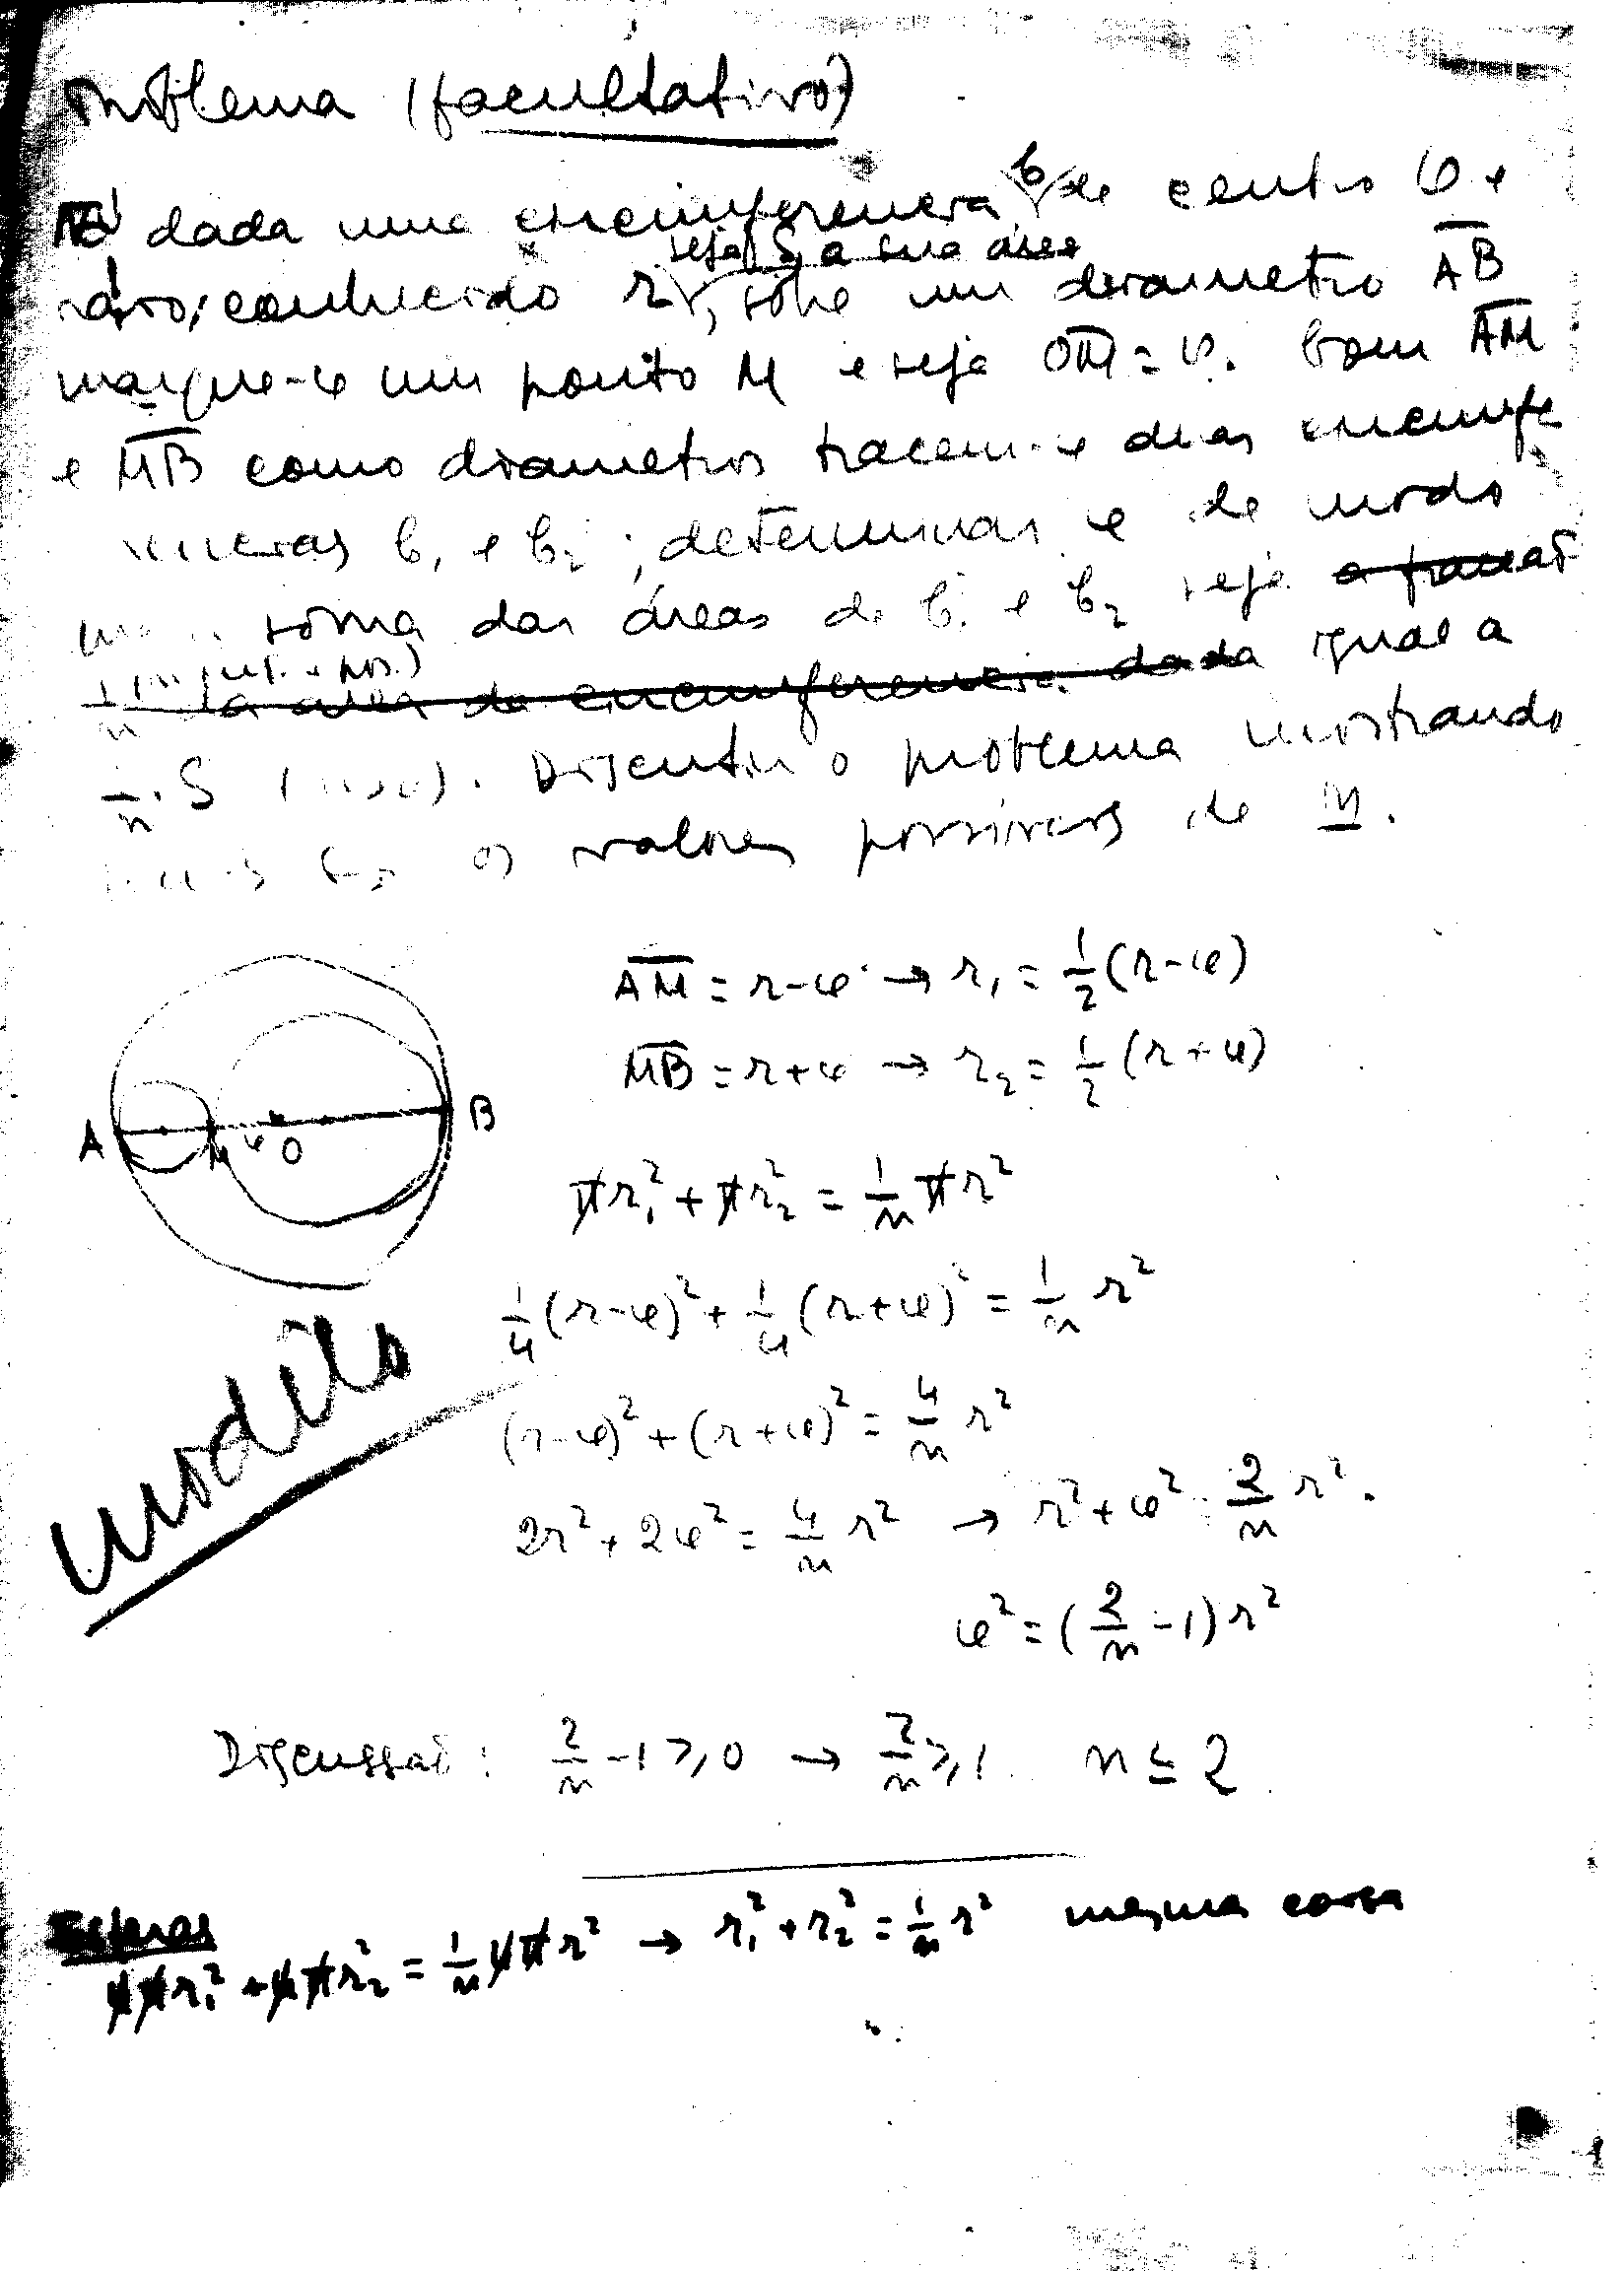 Problema (facultativo)
É dada uma circunferencia C de centro O e
seja S a sua área
raio conhecido r, sobre um diametro AB
marque-se um ponto M e seja OM = φ. Com AM
e MB como diametros tracem-se duas circunfe
rencias C₁ e C₂; determinar φ de modo
soma das áreas de C₁ e C₂ seja igual a
1/n · S (n>0). Discutir o problema mostrando
os valores possíveis de n.
AM = r-φ → r₁ = 1/2 (r-φ)
MB = r+φ → r₂ = 1/2 (r+φ)
A M φ O B
πr₁² + πr₂² = 1/n πr²
1/4 (r-φ)² + 1/4 (r+φ)² = 1/n r²
(r-φ)² + (r+φ)² = 4/n r²
2r² + 2φ² = 4/n r² → r² + φ² = 2/n r².
φ² = (2/n - 1) r²
Discussão: 2/n - 1 ≥ 0 → 2/n ≥ 1 n ≤ 2
Esferas
4πr₁² + 4πr₂² = 1/n 4πr² → r₁² + r₂² = 1/n r² mesma coisa